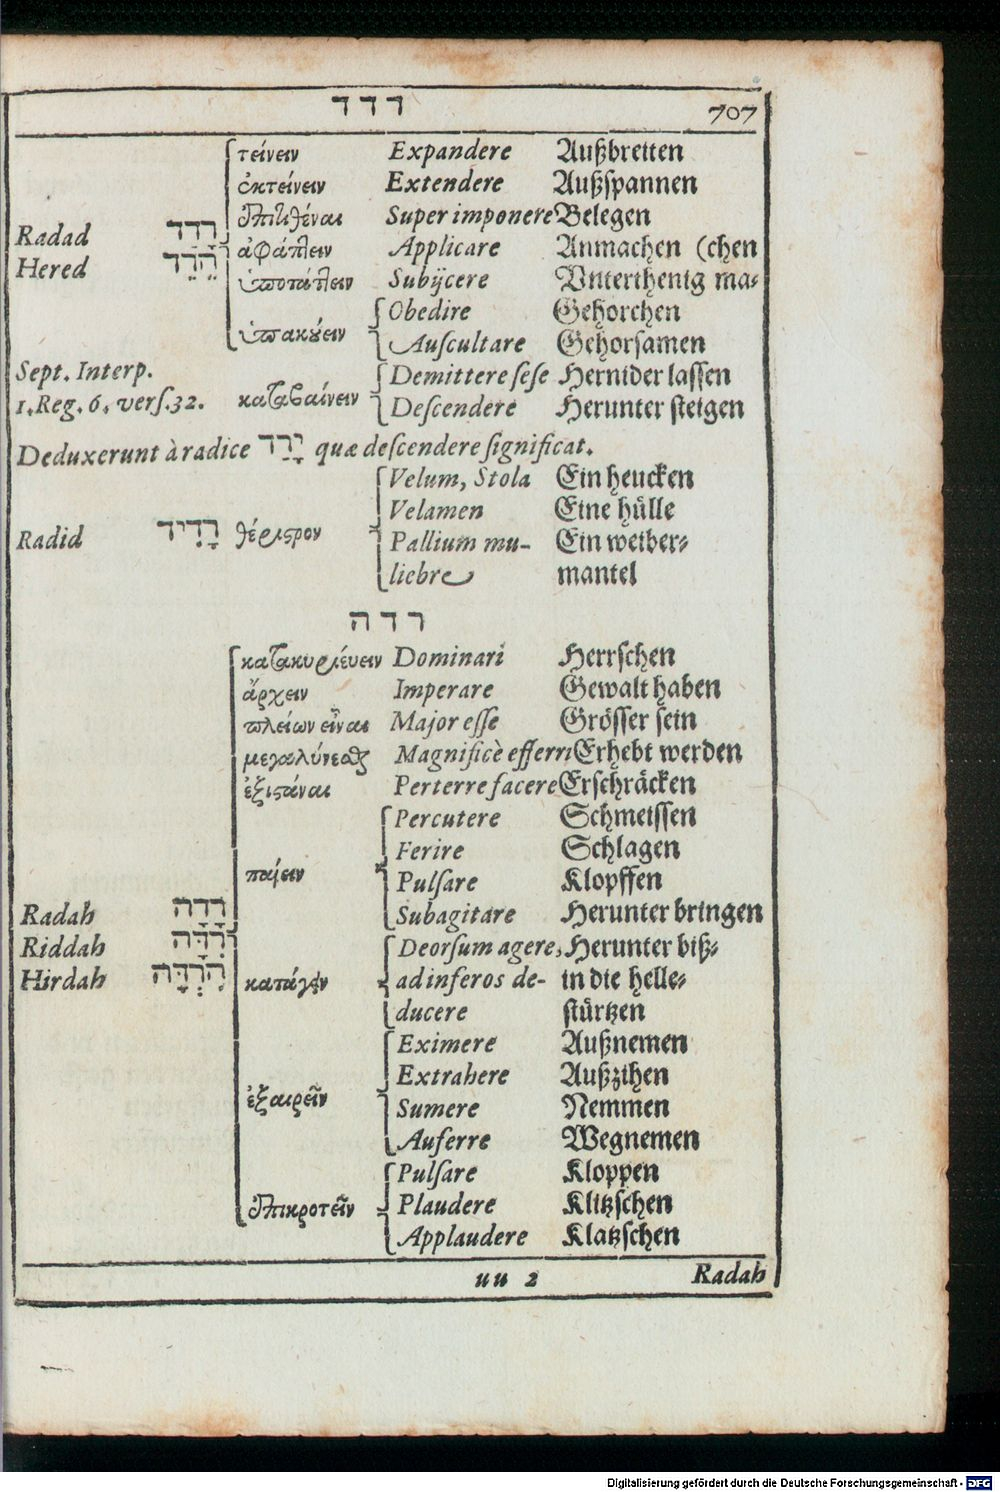 רדד 707
τείνειν Expandere Außbreiten
ἐκτείνειν Extendere Außspannen
ἐπιτιθέναι Super imponere Belegen
Radad רָדַד ἀφάπτειν Applicare Anmachen (chen
Hered הֵרֵד ὑποτάττειν Subijcere Vnterthenig ma-
ὑπακούειν Obedire Gehorchen
Auſcultare Gehorſamen
Sept. Interp. Demittere ſeſe Hernider laſſen
1. Reg. 6. verſ. 32. καταβαίνειν Deſcendere Herunter ſteigen
Deduxerunt à radice יָרַד quæ deſcendere ſignificat.
Velum, Stola Ein heucken
Velamen Eine hülle
Radid רָדִיד θέριστρον Pallium mu- Ein weiber-
liebre mantel
רדה
κατακυριεύειν Dominari Herrſchen
ἄρχειν Imperare Gewalt haben
πλείων εἶναι Major eſſe Gröſſer ſein
μεγαλύνεσθαι Magnificè efferri Erhebt werden
ἐξιστάναι Perterrefacere Erſchräcken
Percutere Schmeiſſen
Ferire Schlagen
παίειν Pulſare Klopffen
Radah רָדָה Subagitare Herunter bringen
Riddah רִדָּה Deorſum agere, Herunter biß-
Hirdah הִרְדָּה κατάγειν ad inferos de- in die helle-
ducere ſtürtzen
Eximere Außnemen
Extrahere Außzihen
ἐξαιρεῖν Sumere Nemmen
Auferre Wegnemen
Pulſare Kloppen
ἐπικροτεῖν Plaudere Klitzſchen
Applaudere Klatzſchen
uu 2 Radah
Digitalisierung gefördert durch die Deutsche Forschungsgemeinschaft - DFG